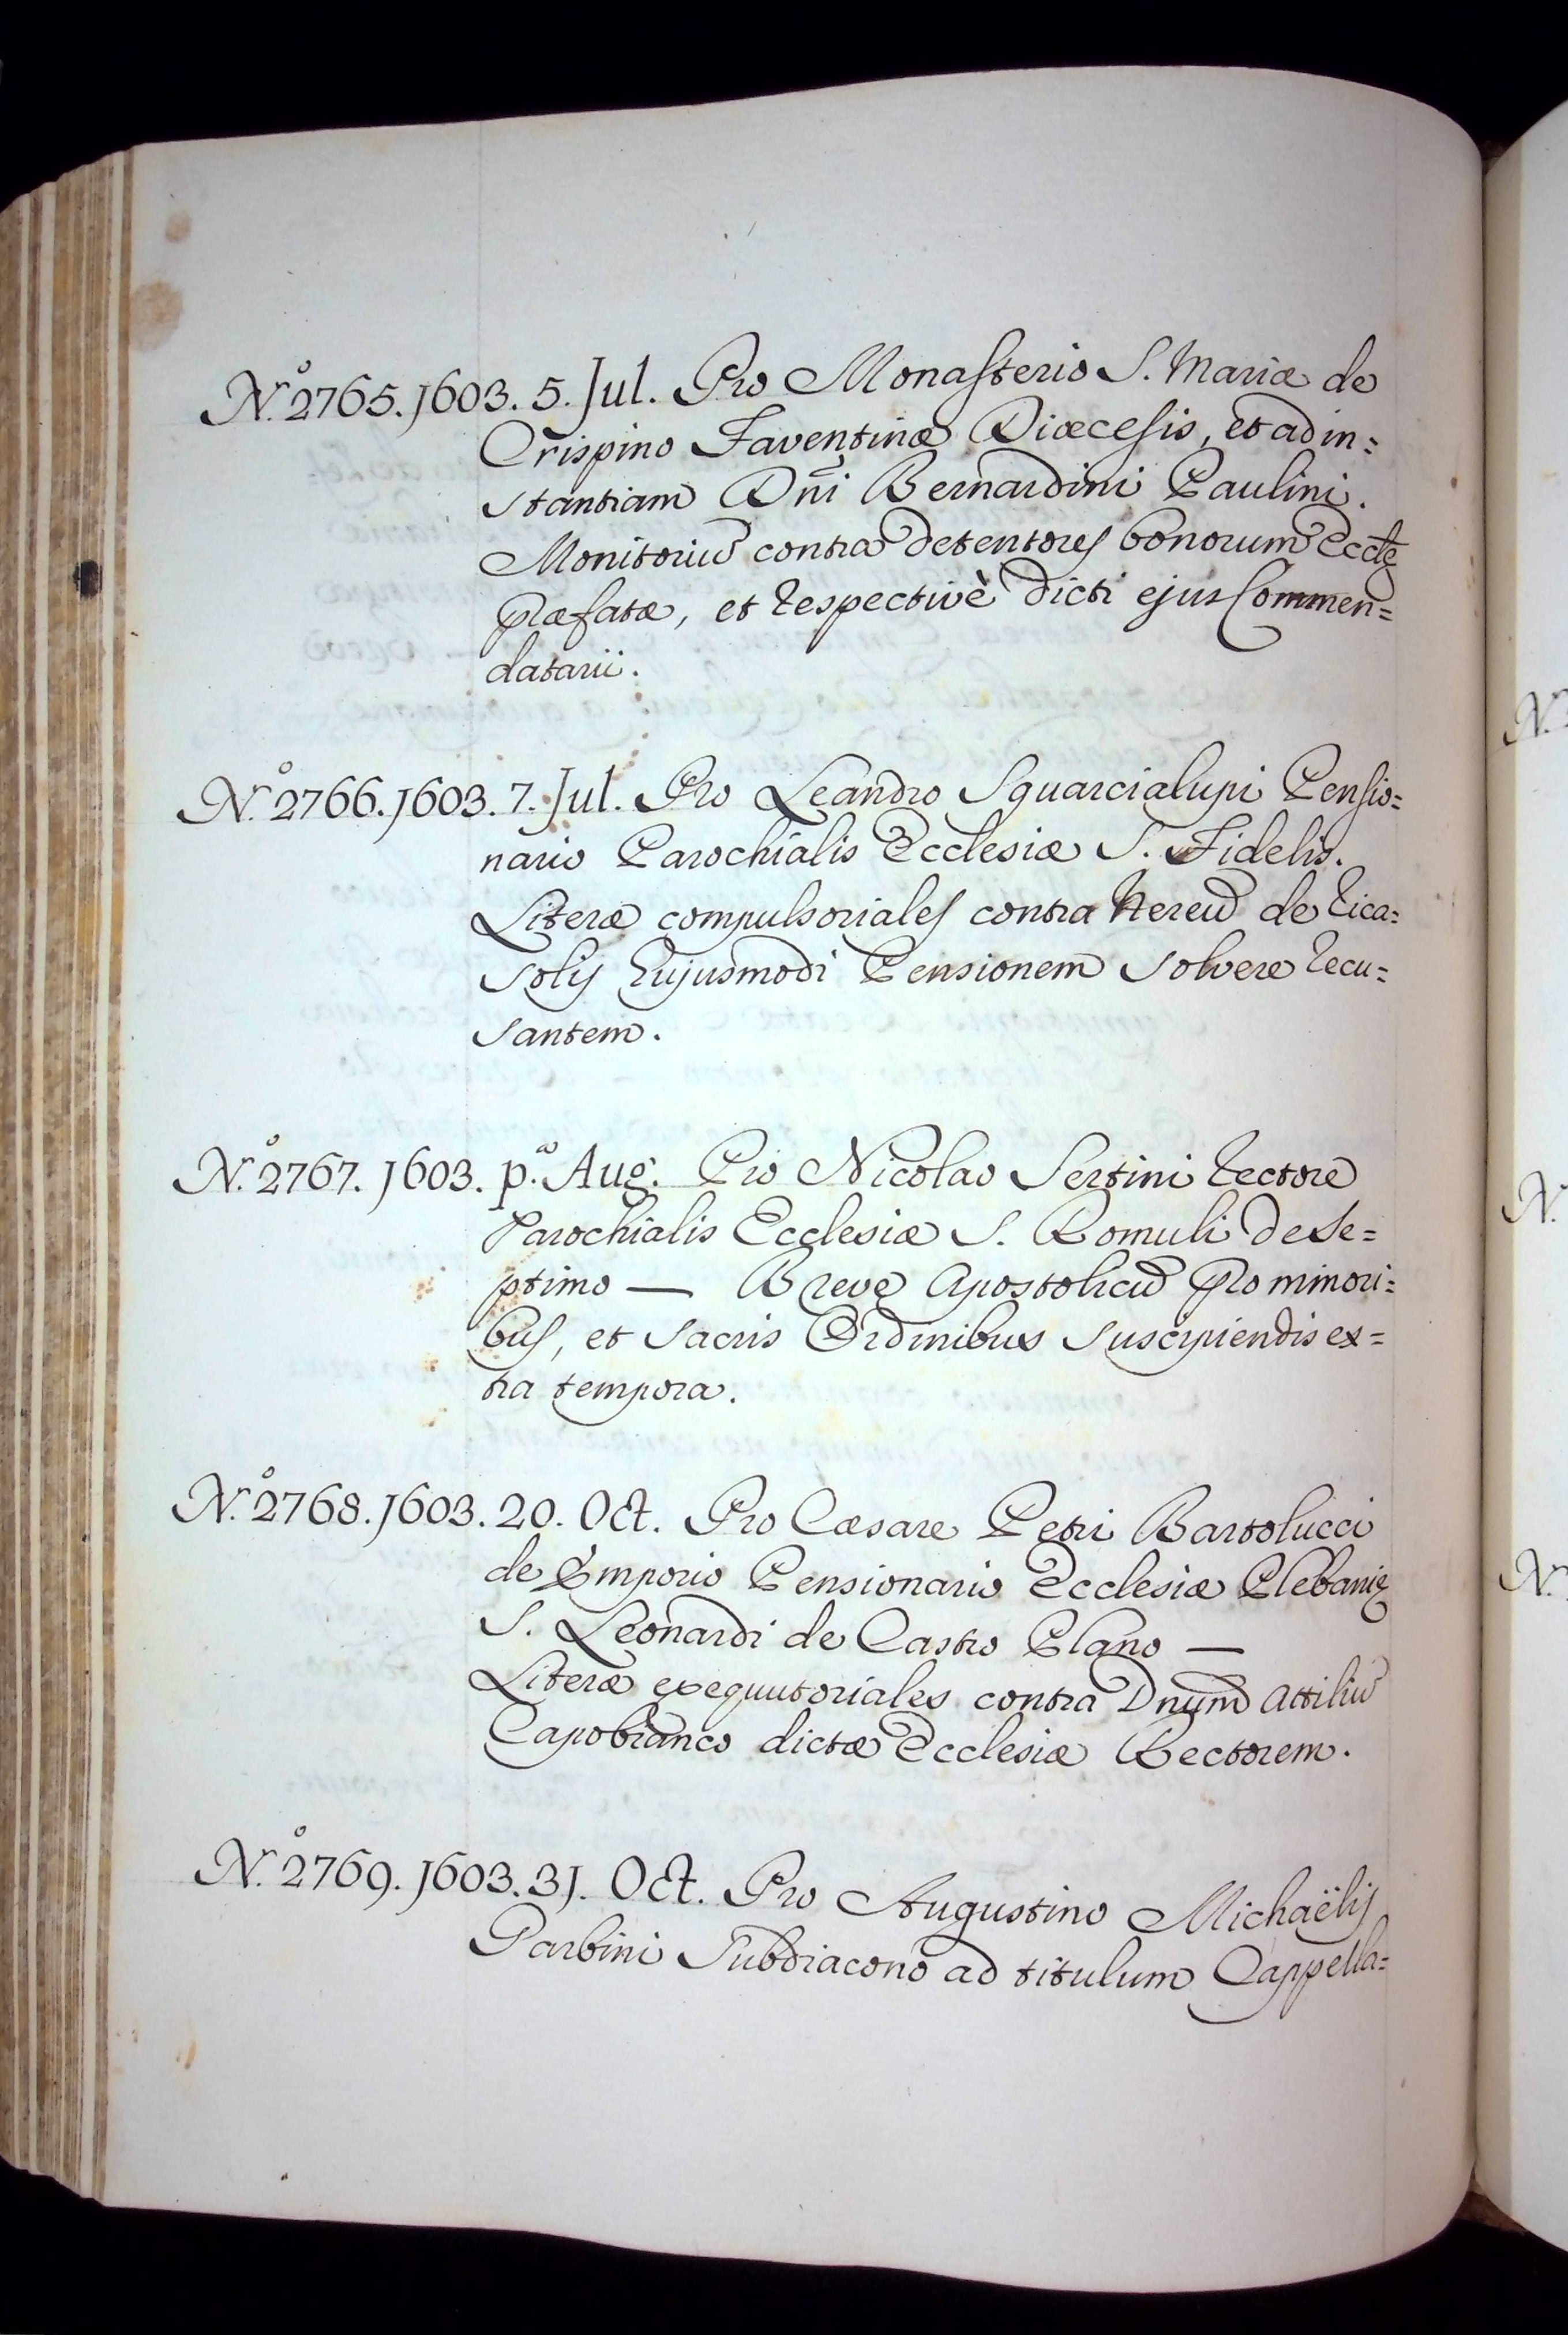 N.º 2765. 1603. 5. Jul. Pro Monasterio S. Mariæ de
Crispino Faventinæ Diœcesis, et ad in=
stantiam Dñi Bernardini Paulini.
Monitoriũ contra detentores bonorum Eccłę
præfatæ, et respectivè dicti ejus Commen=
datarii.
N.º 2766. 1603. 7. Jul. Pro Leandro Squarcialupi Pensio=
nario Parochialis Ecclesiæ S. Fidelis.
Literæ compulsoriales contra Hereũ de Rica=
solijs hujusmodi Pensionem solvere recu=
santem.
N.º 2767. 1603. p.º Aug. Pro Nicolao Sertini Rectore
Parochialis Ecclesiæ S. Romuli de Se=
ptimo — Breve Apostolicũ pro minori=
bus, et sacris Ordinibus suscipiendis ex=
tra tempora.
N.º 2768. 1603. 20. Oct. Pro Cæsare Petri Bartolucci
de Emporio Pensionario Ecclesiæ Plebanię
S. Leonardi de Castro Plano —
Literæ exequutoriales contra Dnum̃ Attiliũ
Capobianco dictæ Ecclesiæ Rectorem.
N.º 2769. 1603. 31. Oct. Pro Augustino Michaëlis
Garbini Subdiacono ad titulum Cappella=
N.
N.
N.